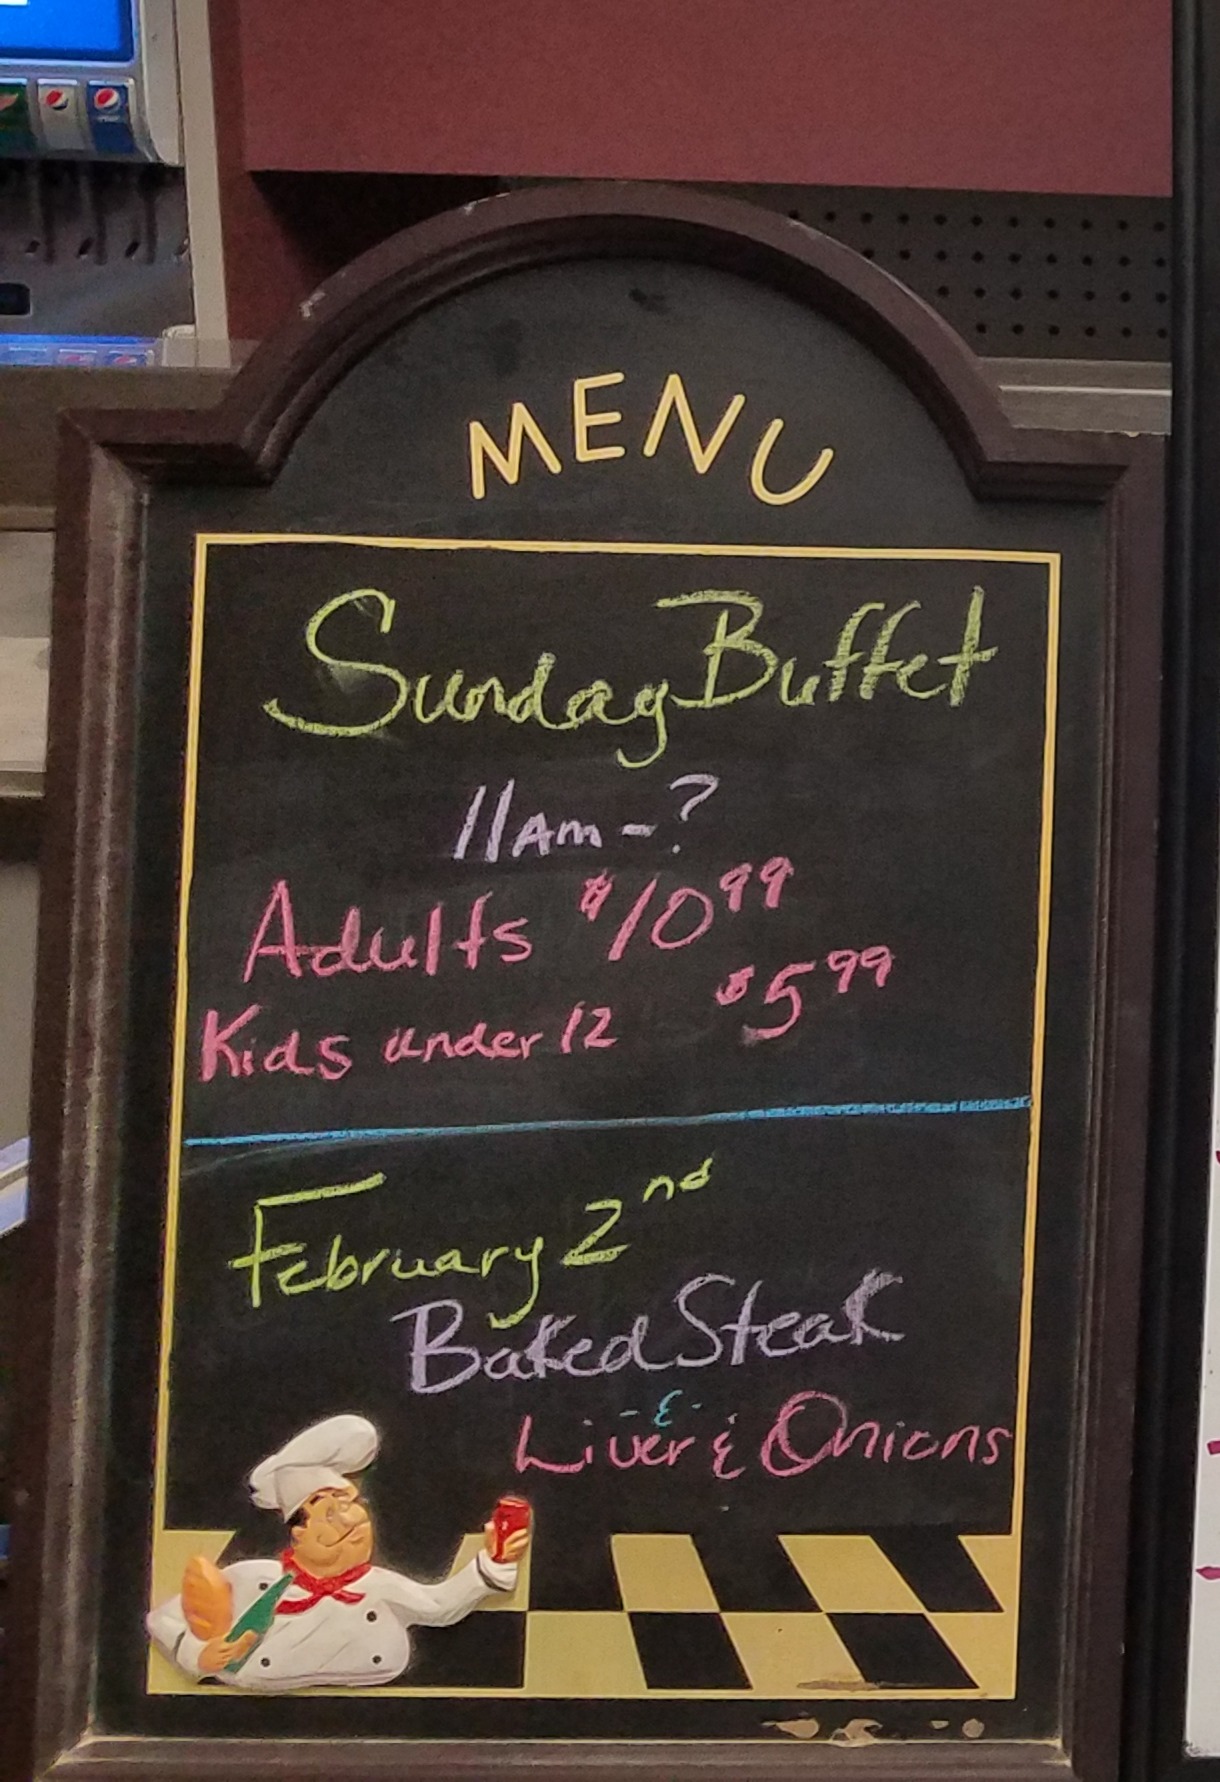 MENU
Sunday Buffet
11Am - ?
Adults $10 99
Kids under 12 $5 99
February 2nd
Baked Steak
- & -
Liver & Onions